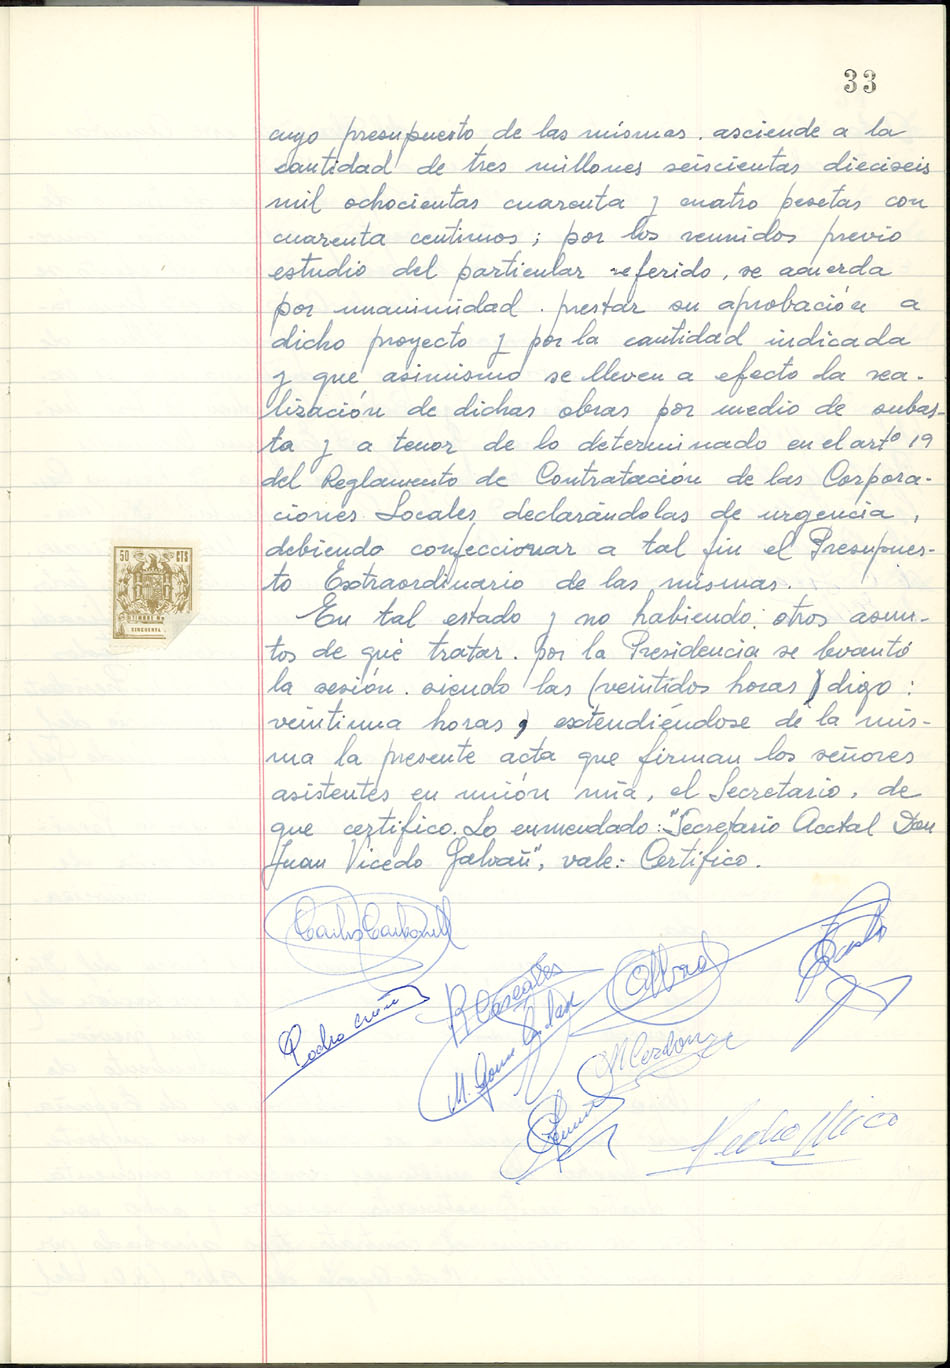 33
cuyo presupuesto de las mismas. asciende a la
cantidad de tres millones seiscientas dieciseis
mil ochocientas cuarenta y cuatro pesetas con
cuarenta centimos; por los reunidos previo
estudio del particular referido, se acuerda
por unanimidad. prestar su aprobación a
dicho proyecto y por la cantidad indicada
y que asimismo se lleven a efecto la rea-
lización de dichas obras por medio de subas-
ta y a tenor de lo determinado en el artº 19
del Reglamento de Contratación de las Corpora-
ciones Locales, declarándolas de urgencia,
debiendo confeccionar a tal fin el Presupues-
to Extraordinario de las mismas.
50 CTS
CINCUENTA
En tal estado y no habiendo otros asun-
tos de qué tratar. por la Presidencia se levantó
la sesión. siendo las (veintidos horas) digo:
veintiuna horas, extendiéndose de la mis-
ma la presente acta que firman los señores
asistentes en unión mía, el Secretario, de
que certifico. Lo enmendado: "Secretario Acctal Don
Juan Vicedo Galvañ", vale: Certifico.
Carlos Carbonell
R Cascales
Pedro Mico